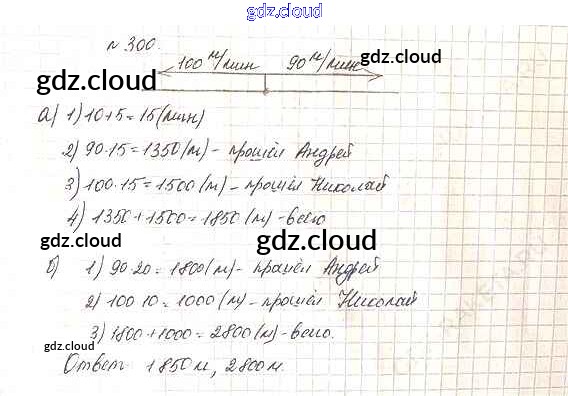 gdz.cloud
№ 300.
100 м/мин 90 м/мин
gdz.cloud gdz.cloud
а) 1) 10+5=15 (мин)
2) 90·15=1350 (м) - прошёл Андрей
3) 100·15=1500 (м) - прошёл Николай
4) 1350+1500=1850 (м) - всего
gdz.cloud gdz.cloud
б) 1) 90·20=1800 (м) - прошёл Андрей
2) 100·10=1000 (м) - прошёл Николай
3) 1800+1000=2800 (м) - всего.
gdz.cloud gdz.cloud
Ответ 1850 м, 2800 м.